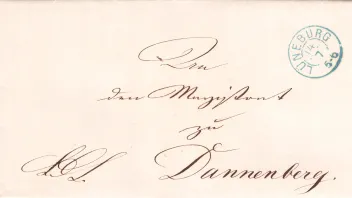 LÜNEBURG
7
5-6
An
den Magistrat
zu
Dannenberg.